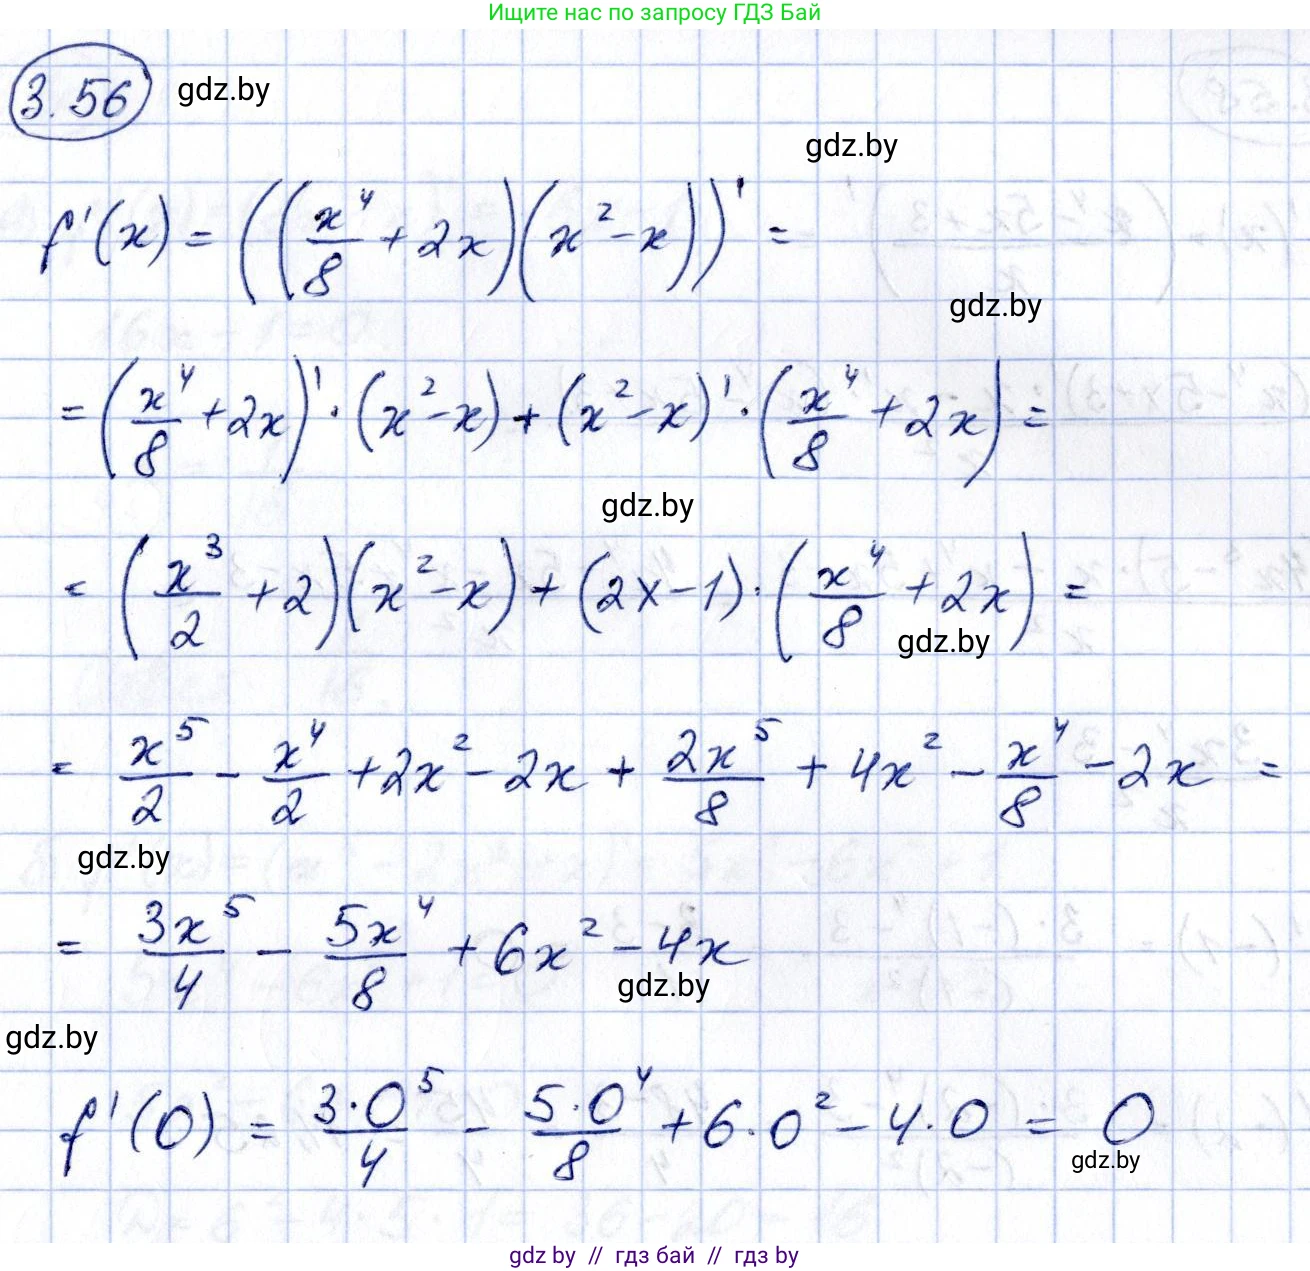 Ищите нас по запросу ГДЗ Бай
3.56 gdz.by
gdz.by
f'(x) = ((x⁴/8 + 2x)(x² - x))' =
gdz.by
= (x⁴/8 + 2x)' · (x² - x) + (x² - x)' · (x⁴/8 + 2x) =
gdz.by
= (x³/2 + 2)(x² - x) + (2x - 1) · (x⁴/8 + 2x) =
gdz.by
= x⁵/2 - x⁴/2 + 2x² - 2x + 2x⁵/8 + 4x² - x⁴/8 - 2x =
gdz.by
= 3x⁵/4 - 5x⁴/8 + 6x² - 4x
gdz.by
gdz.by
f'(0) = 3·0⁵/4 - 5·0⁴/8 + 6·0² - 4·0 = 0
gdz.by
gdz by // гдз бай // гдз by